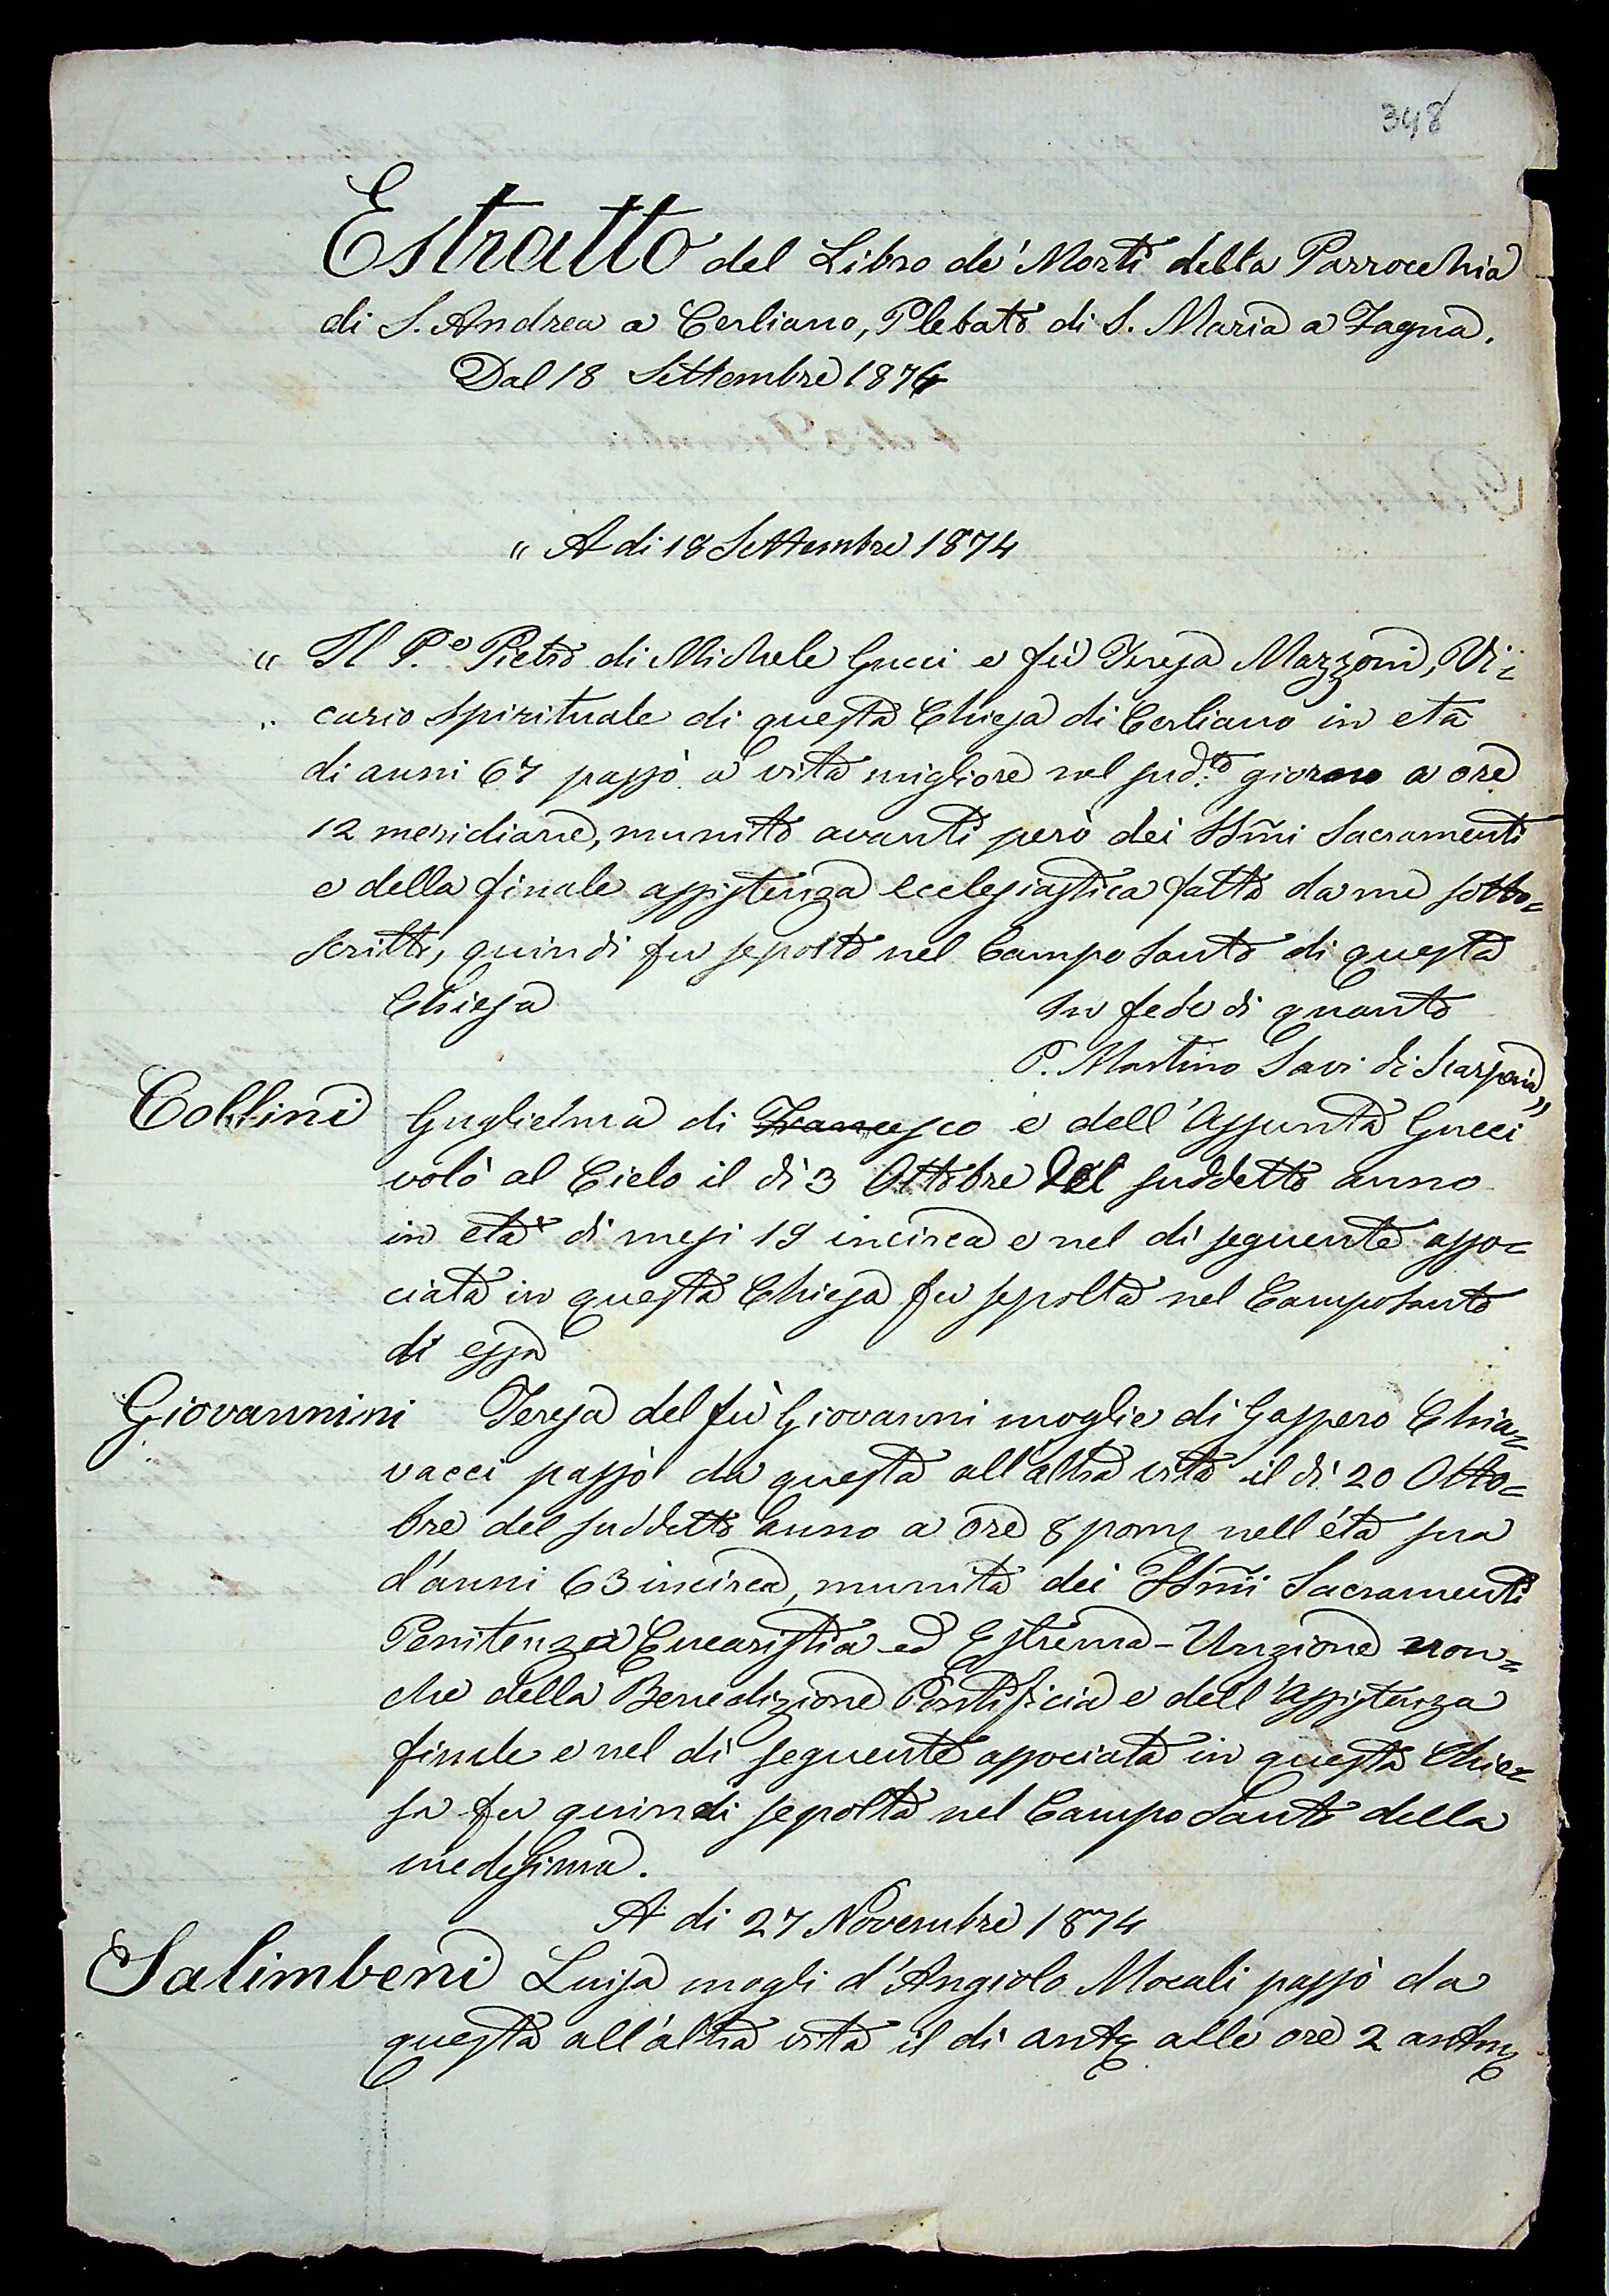 348
Estratto del Libro de' Morti della Parrocchia
di S. Andrea a Cerliano, Plebato di S. Maria a Fagna.
Dal 18 Settembre 1874
" A di 18 Settembre 1874
" Il P.e Pietro di Michele Gucci e fù Teresa Mazzoni, Vi=
" cario Spirituale di questa Chiesa di Cerliano in età
di anni 67 passò a vita migliore nel sud.to giorno a ore
12 meridiane, munito avanti però dei SSm̃i Sacramenti
e della finale assistenza Ecclesiastica fatta da me sotto=
scritto, quindi fu sepolto nel Campo Santo di questa
Chiesa
In fede di quanto
P. Martino Savi di Scarperia"
Collini Guglielma di Francesco e dell'Assunta Gucci
volò al Cielo il dì 3 Ottobre del suddetto anno
in età di mesi 19 incirca e nel dì seguente asso=
ciata in questa Chiesa fu sepolta nel Camposanto
di essa
Giovannini Teresa del fù Giovanni moglie di Gaspero Chia=
vacci passò da questa all'altra vita il dì 20 Otto=
bre del suddetto anno a ore 8 pom; nell'età sua
d'anni 63 incirca, munita dei SSm̃i Sacramenti
Penitenza Eucaristia ed Estrema-Unzione non=
che della Benedizione Pontificia e dell'Assistenza
finale e nel dì seguente associata in questa Chie=
sa fu quindi sepolta nel Campo Santo della
medesima.
A di 27 Novembre 1874
Salimbeni Luisa mogli d'Angiolo Mocali passò da
questa all'altra vita il dì ant; alle ore 2 antm;